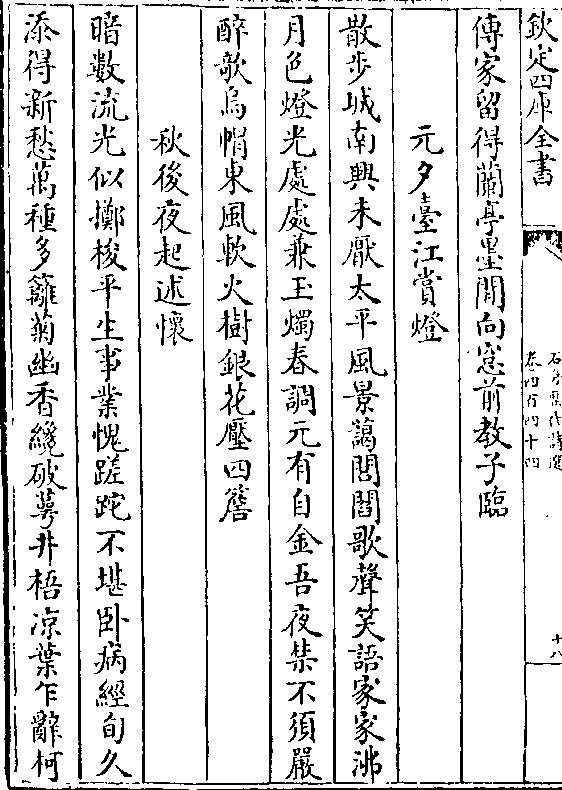 欽定四庫全書
石倉歷代詩選
卷四百四十四
十八
傳家留得蘭亭墨閒向窓前教子臨
元夕臺江賞燈
散步城南興未厭太平風景藹閭閻歌聲笑語家家沸
月色燈光處處兼玉燭春調元有自金吾夜禁不須嚴
醉歌烏帽東風軟火樹銀花壓四簷
秋後夜起述懷
暗數流光似擲梭平生事業愧蹉跎不堪卧病經旬久
添得新愁萬種多籬菊幽香纔破萼井梧凉葉乍辭柯